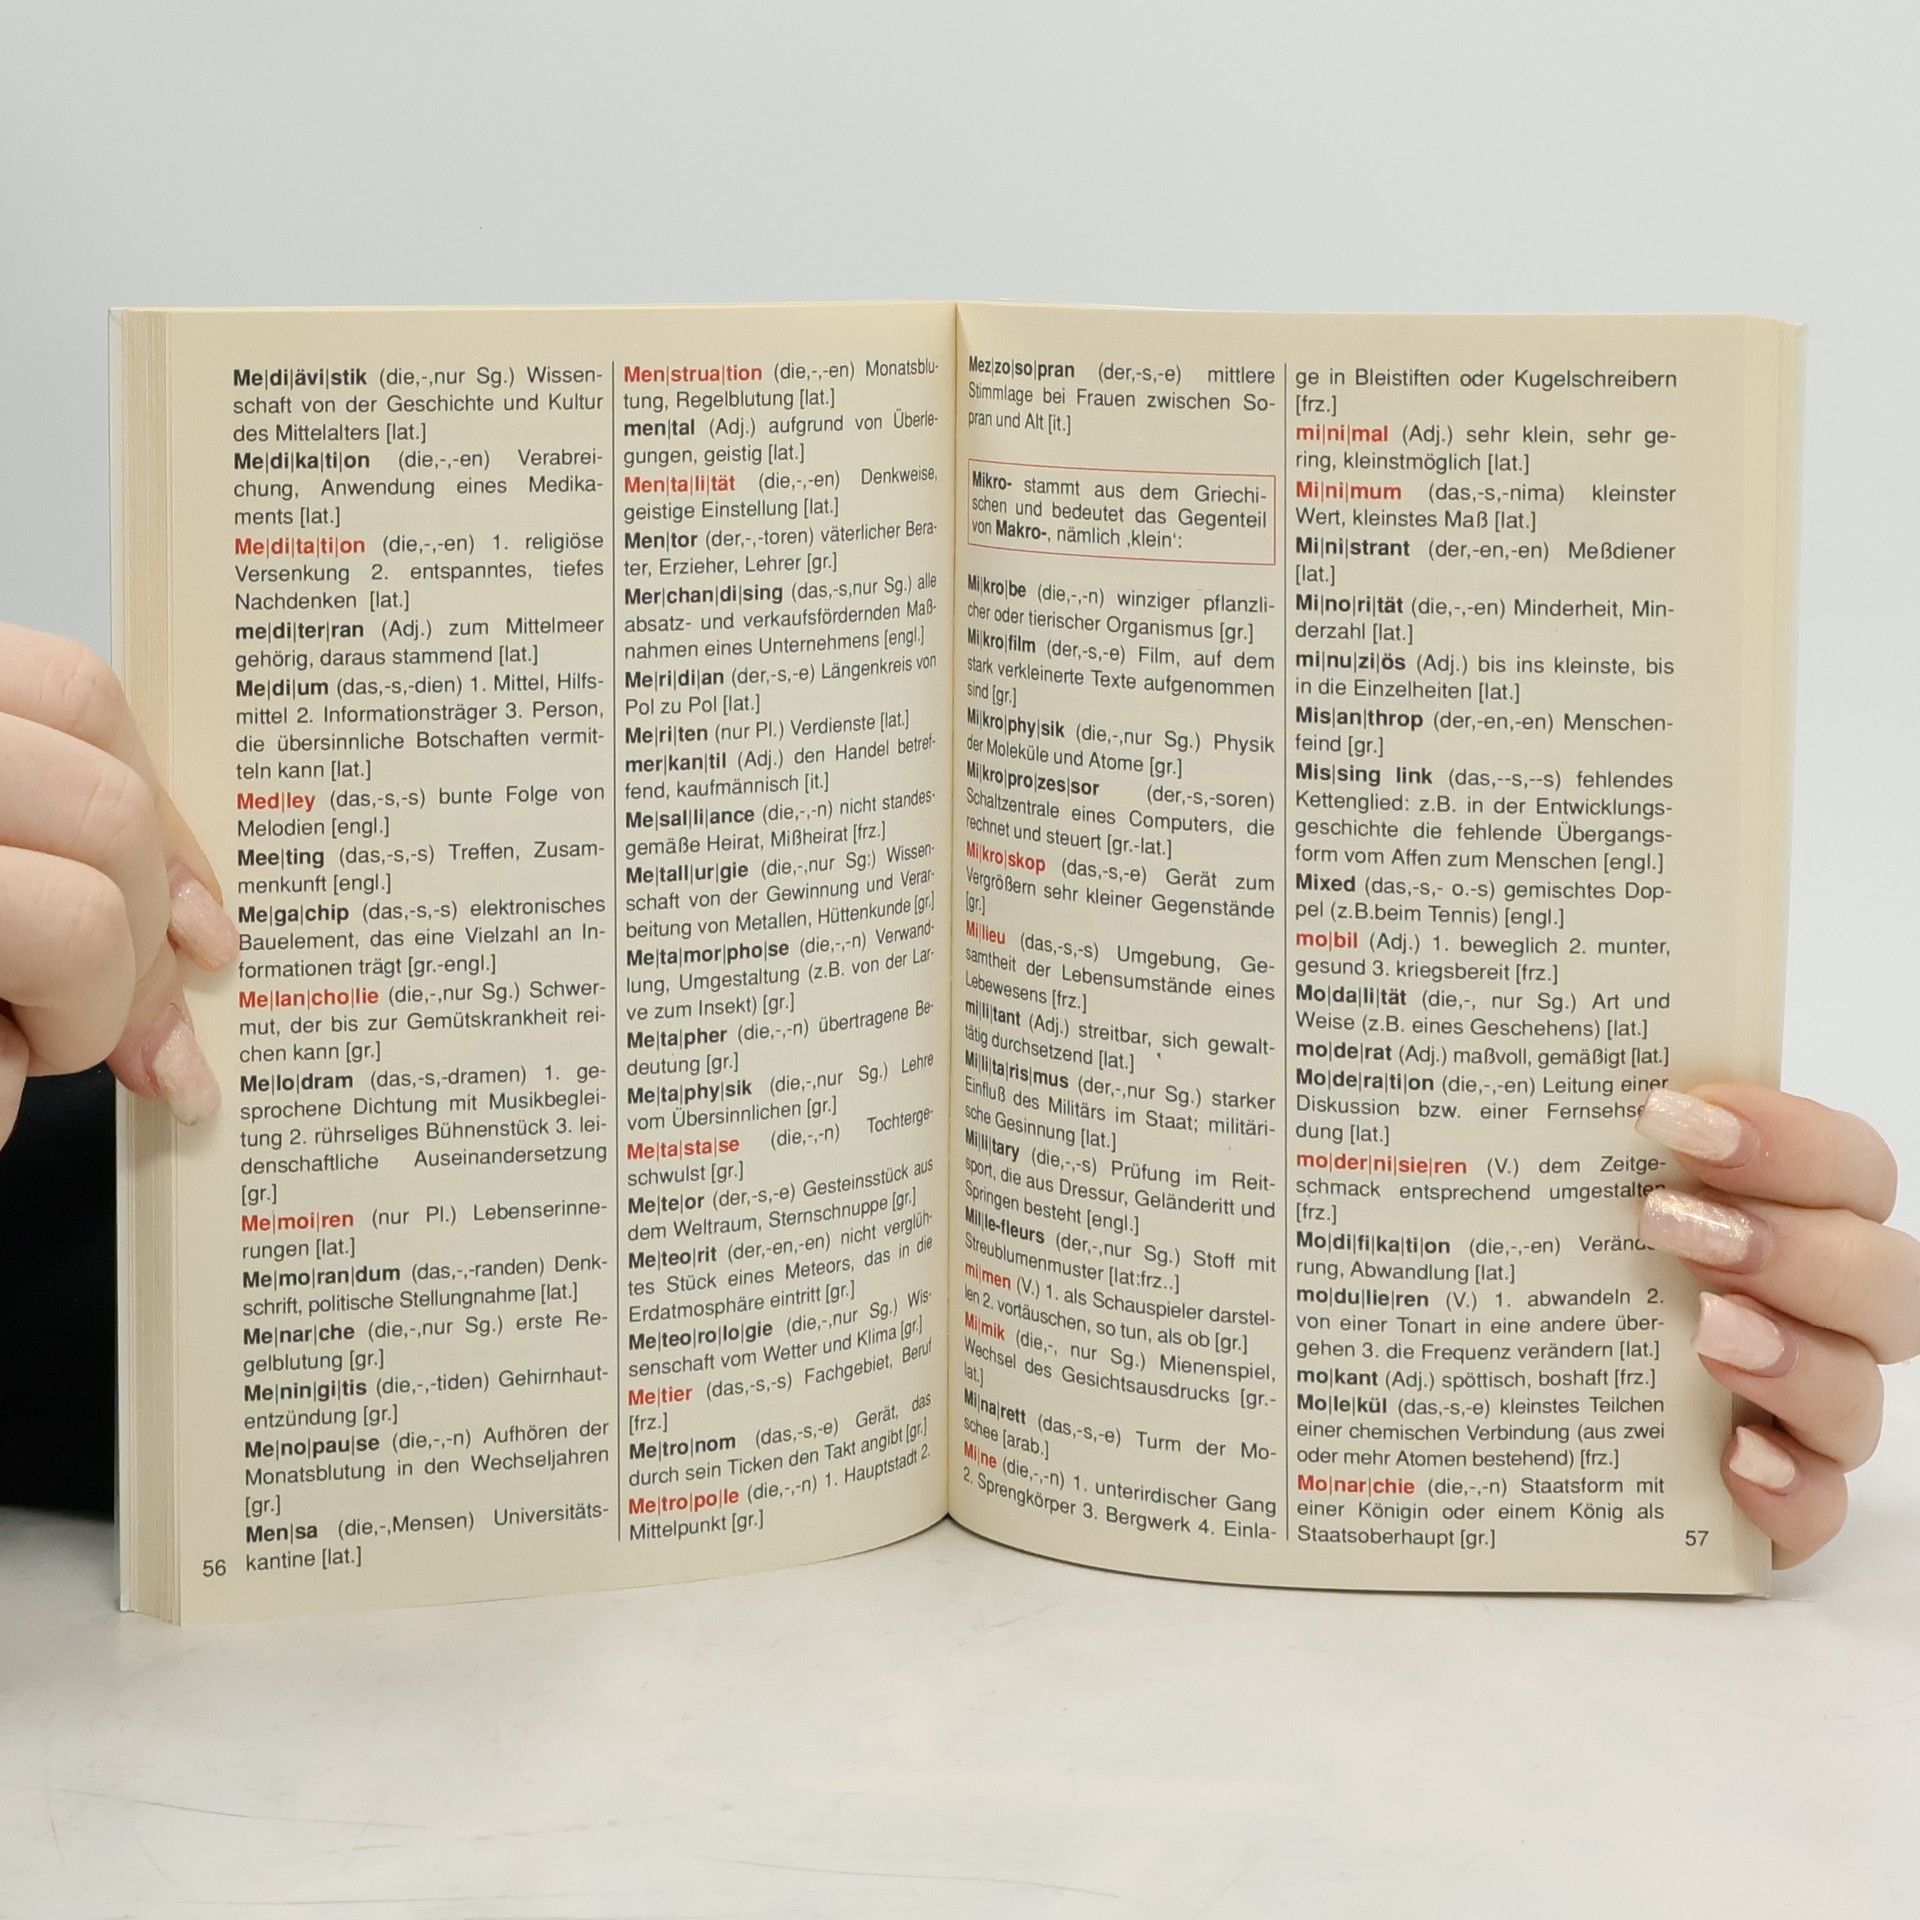 Me|di|ävi|stik (die,-,nur Sg.) Wissen-
schaft von der Geschichte und Kultur
des Mittelalters [lat.]
Me|di|ka|ti|on (die,-,-en) Verabrei-
chung, Anwendung eines Medika-
ments [lat.]
Me|di|ta|ti|on (die,-,-en) 1. religiöse
Versenkung 2. entspanntes, tiefes
Nachdenken [lat.]
me|di|ter|ran (Adj.) zum Mittelmeer
gehörig, daraus stammend [lat.]
Me|di|um (das,-s,-dien) 1. Mittel, Hilfs-
mittel 2. Informationsträger 3. Person,
die übersinnliche Botschaften vermit-
teln kann [lat.]
Med|ley (das,-s,-s) bunte Folge von
Melodien [engl.]
Mee|ting (das,-s,-s) Treffen, Zusam-
menkunft [engl.]
Me|ga|chip (das,-s,-s) elektronisches
Bauelement, das eine Vielzahl an In-
formationen trägt [gr.-engl.]
Me|lan|cho|lie (die,-,nur Sg.) Schwer-
mut, der bis zur Gemütskrankheit rei-
chen kann [gr.]
Me|lo|dram (das,-s,-dramen) 1. ge-
sprochene Dichtung mit Musikbeglei-
tung 2. rührseliges Bühnenstück 3. lei-
denschaftliche Auseinandersetzung
[gr.]
Me|moi|ren (nur Pl.) Lebenserinne-
rungen [lat.]
Me|mo|ran|dum (das,-,-randen) Denk-
schrift, politische Stellungnahme [lat.]
Me|nar|che (die,-,nur Sg.) erste Re-
gelblutung [gr.]
Me|nin|gi|tis (die,-,-tiden) Gehirnhaut-
entzündung [gr.]
Me|no|pau|se (die,-,-n) Aufhören der
Monatsblutung in den Wechseljahren
[gr.]
Men|sa (die,-,Mensen) Universitäts-
kantine [lat.]
56
Men|strua|tion (die,-,-en) Monatsblu-
tung, Regelblutung [lat.]
men|tal (Adj.) aufgrund von Überle-
gungen, geistig [lat.]
Men|ta|li|tät (die,-,-en) Denkweise,
geistige Einstellung [lat.]
Men|tor (der,-,-toren) väterlicher Bera-
ter, Erzieher, Lehrer [gr.]
Mer|chan|di|sing (das,-s,nur Sg.) alle
absatz- und verkaufsfördernden Maß-
nahmen eines Unternehmens [engl.]
Me|ri|di|an (der,-s,-e) Längenkreis von
Pol zu Pol [lat.]
Me|ri|ten (nur Pl.) Verdienste [lat.]
mer|kan|til (Adj.) den Handel betref-
fend, kaufmännisch [it.]
Me|sal|li|ance (die,-,-n) nicht standes-
gemäße Heirat, Mißheirat [frz.]
Me|tall|ur|gie (die,-,nur Sg:) Wissen-
schaft von der Gewinnung und Verar-
beitung von Metallen, Hüttenkunde [gr.]
Me|ta|mor|pho|se (die,-,-n) Verwand-
lung, Umgestaltung (z.B. von der Lar-
ve zum Insekt) [gr.]
Me|ta|pher (die,-,-n) übertragene Be-
deutung [gr.]
Me|ta|phy|sik (die,-,nur Sg.) Lehre
vom Übersinnlichen [gr.]
Me|ta|sta|se (die,-,-n) Tochterge-
schwulst [gr.]
Me|te|or (der,-s,-e) Gesteinsstück aus
dem Weltraum, Sternschnuppe [gr.]
Me|teo|rit (der,-en,-en) nicht verglüh-
tes Stück eines Meteors, das in die
Erdatmosphäre eintritt [gr.]
Me|teo|ro|lo|gie (die,-,nur Sg.) Wis-
senschaft vom Wetter und Klima [gr.]
Me|tier (das,-s,-s) Fachgebiet, Beruf
[frz.]
Me|tro|nom (das,-s,-e) Gerät, das
durch sein Ticken den Takt angibt [gr.]
Me|tro|po|le (die,-,-n) 1. Hauptstadt 2.
Mittelpunkt [gr.]
Mez|zo|so|pran (der,-s,-e) mittlere
Stimmlage bei Frauen zwischen So-
pran und Alt [it.]
Mikro- stammt aus dem Griechi-
schen und bedeutet das Gegenteil
von Makro-, nämlich ‚klein‘:
Mi|kro|be (die,-,-n) winziger pflanzli-
cher oder tierischer Organismus [gr.]
Mi|kro|film (der,-s,-e) Film, auf dem
stark verkleinerte Texte aufgenommen
sind [gr.]
Mi|kro|phy|sik (die,-,nur Sg.) Physik
der Moleküle und Atome [gr.]
Mi|kro|pro|zes|sor (der,-s,-soren)
Schaltzentrale eines Computers, die
rechnet und steuert [gr.-lat.]
Mi|kro|skop (das,-s,-e) Gerät zum
Vergrößern sehr kleiner Gegenstände
[gr.]
Mi|lieu (das,-s,-s) Umgebung, Ge-
samtheit der Lebensumstände eines
Lebewesens [frz.]
mi|li|tant (Adj.) streitbar, sich gewalt-
tätig durchsetzend [lat.]
Mi|li|ta|ris|mus (der,-,nur Sg.) starker
Einfluß des Militärs im Staat; militäri-
sche Gesinnung [lat.]
Mi|li|tary (die,-,-s) Prüfung im Reit-
sport, die aus Dressur, Geländeritt und
Springen besteht [engl.]
Mil|le-fleurs (der,-,nur Sg.) Stoff mit
Streublumenmuster [lat:frz..]
mi|men (V.) 1. als Schauspieler darstel-
len 2. vortäuschen, so tun, als ob [gr.]
Mi|mik (die,-, nur Sg.) Mienenspiel,
Wechsel des Gesichtsausdrucks [gr.-
lat.]
Mi|na|rett (das,-s,-e) Turm der Mo-
schee [arab.]
Mi|ne (die,-,-n) 1. unterirdischer Gang
2. Sprengkörper 3. Bergwerk 4. Einla-
ge in Bleistiften oder Kugelschreibern
[frz.]
mi|ni|mal (Adj.) sehr klein, sehr ge-
ring, kleinstmöglich [lat.]
Mi|ni|mum (das,-s,-nima) kleinster
Wert, kleinstes Maß [lat.]
Mi|ni|strant (der,-en,-en) Meßdiener
[lat.]
Mi|no|ri|tät (die,-,-en) Minderheit, Min-
derzahl [lat.]
mi|nu|zi|ös (Adj.) bis ins kleinste, bis
in die Einzelheiten [lat.]
Mis|an|throp (der,-en,-en) Menschen-
feind [gr.]
Mis|sing link (das,--s,--s) fehlendes
Kettenglied: z.B. in der Entwicklungs-
geschichte die fehlende Übergangs-
form vom Affen zum Menschen [engl.]
Mixed (das,-s,- o.-s) gemischtes Dop-
pel (z.B.beim Tennis) [engl.]
mo|bil (Adj.) 1. beweglich 2. munter,
gesund 3. kriegsbereit [frz.]
Mo|da|li|tät (die,-, nur Sg.) Art und
Weise (z.B. eines Geschehens) [lat.]
mo|de|rat (Adj.) maßvoll, gemäßigt [lat.]
Mo|de|ra|ti|on (die,-,-en) Leitung einer
Diskussion bzw. einer Fernsehse
dung [lat.]
mo|der|ni|sie|ren (V.) dem Zeitge-
schmack entsprechend umgestalten
[frz.]
Mo|di|fi|ka|ti|on (die,-,-en) Verände-
rung, Abwandlung [lat.]
mo|du|lie|ren (V.) 1. abwandeln 2.
von einer Tonart in eine andere über-
gehen 3. die Frequenz verändern [lat.]
mo|kant (Adj.) spöttisch, boshaft [frz.]
Mo|le|kül (das,-s,-e) kleinstes Teilchen
einer chemischen Verbindung (aus zwei
oder mehr Atomen bestehend) [frz.]
Mo|nar|chie (die,-,-n) Staatsform mit
einer Königin oder einem König als
Staatsoberhaupt [gr.]
57